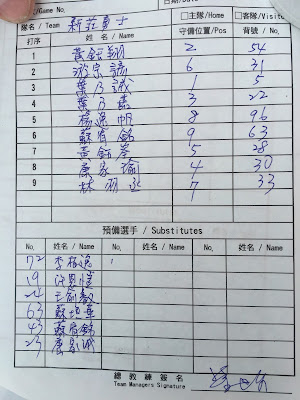 /Game No.
日期/Date
隊名 / Team 新莊勇士 □主隊/Home □客隊/Visitor
打序 姓 名 / Name 守備位置/Pos 背號 / No.
1 黃鈺翔 2 54
2 游宗諺 6 31
3 葉乃誠 1 5
4 葉乃嘉 3 22
5 楊逸帆 8 96
6 蘇育銘 9 63
7 黃鈺峯 5 28
8 康家瑜 4 30
9 林羽丞 7 33
預備選手 / Substitutes
No. 姓名 / Name No. 姓名 / Name No. 姓名 / Name
72 李
19
24 王
63 蘇
43 蘇育銘
23 康家誠
總教練簽名
Team Managers Signature